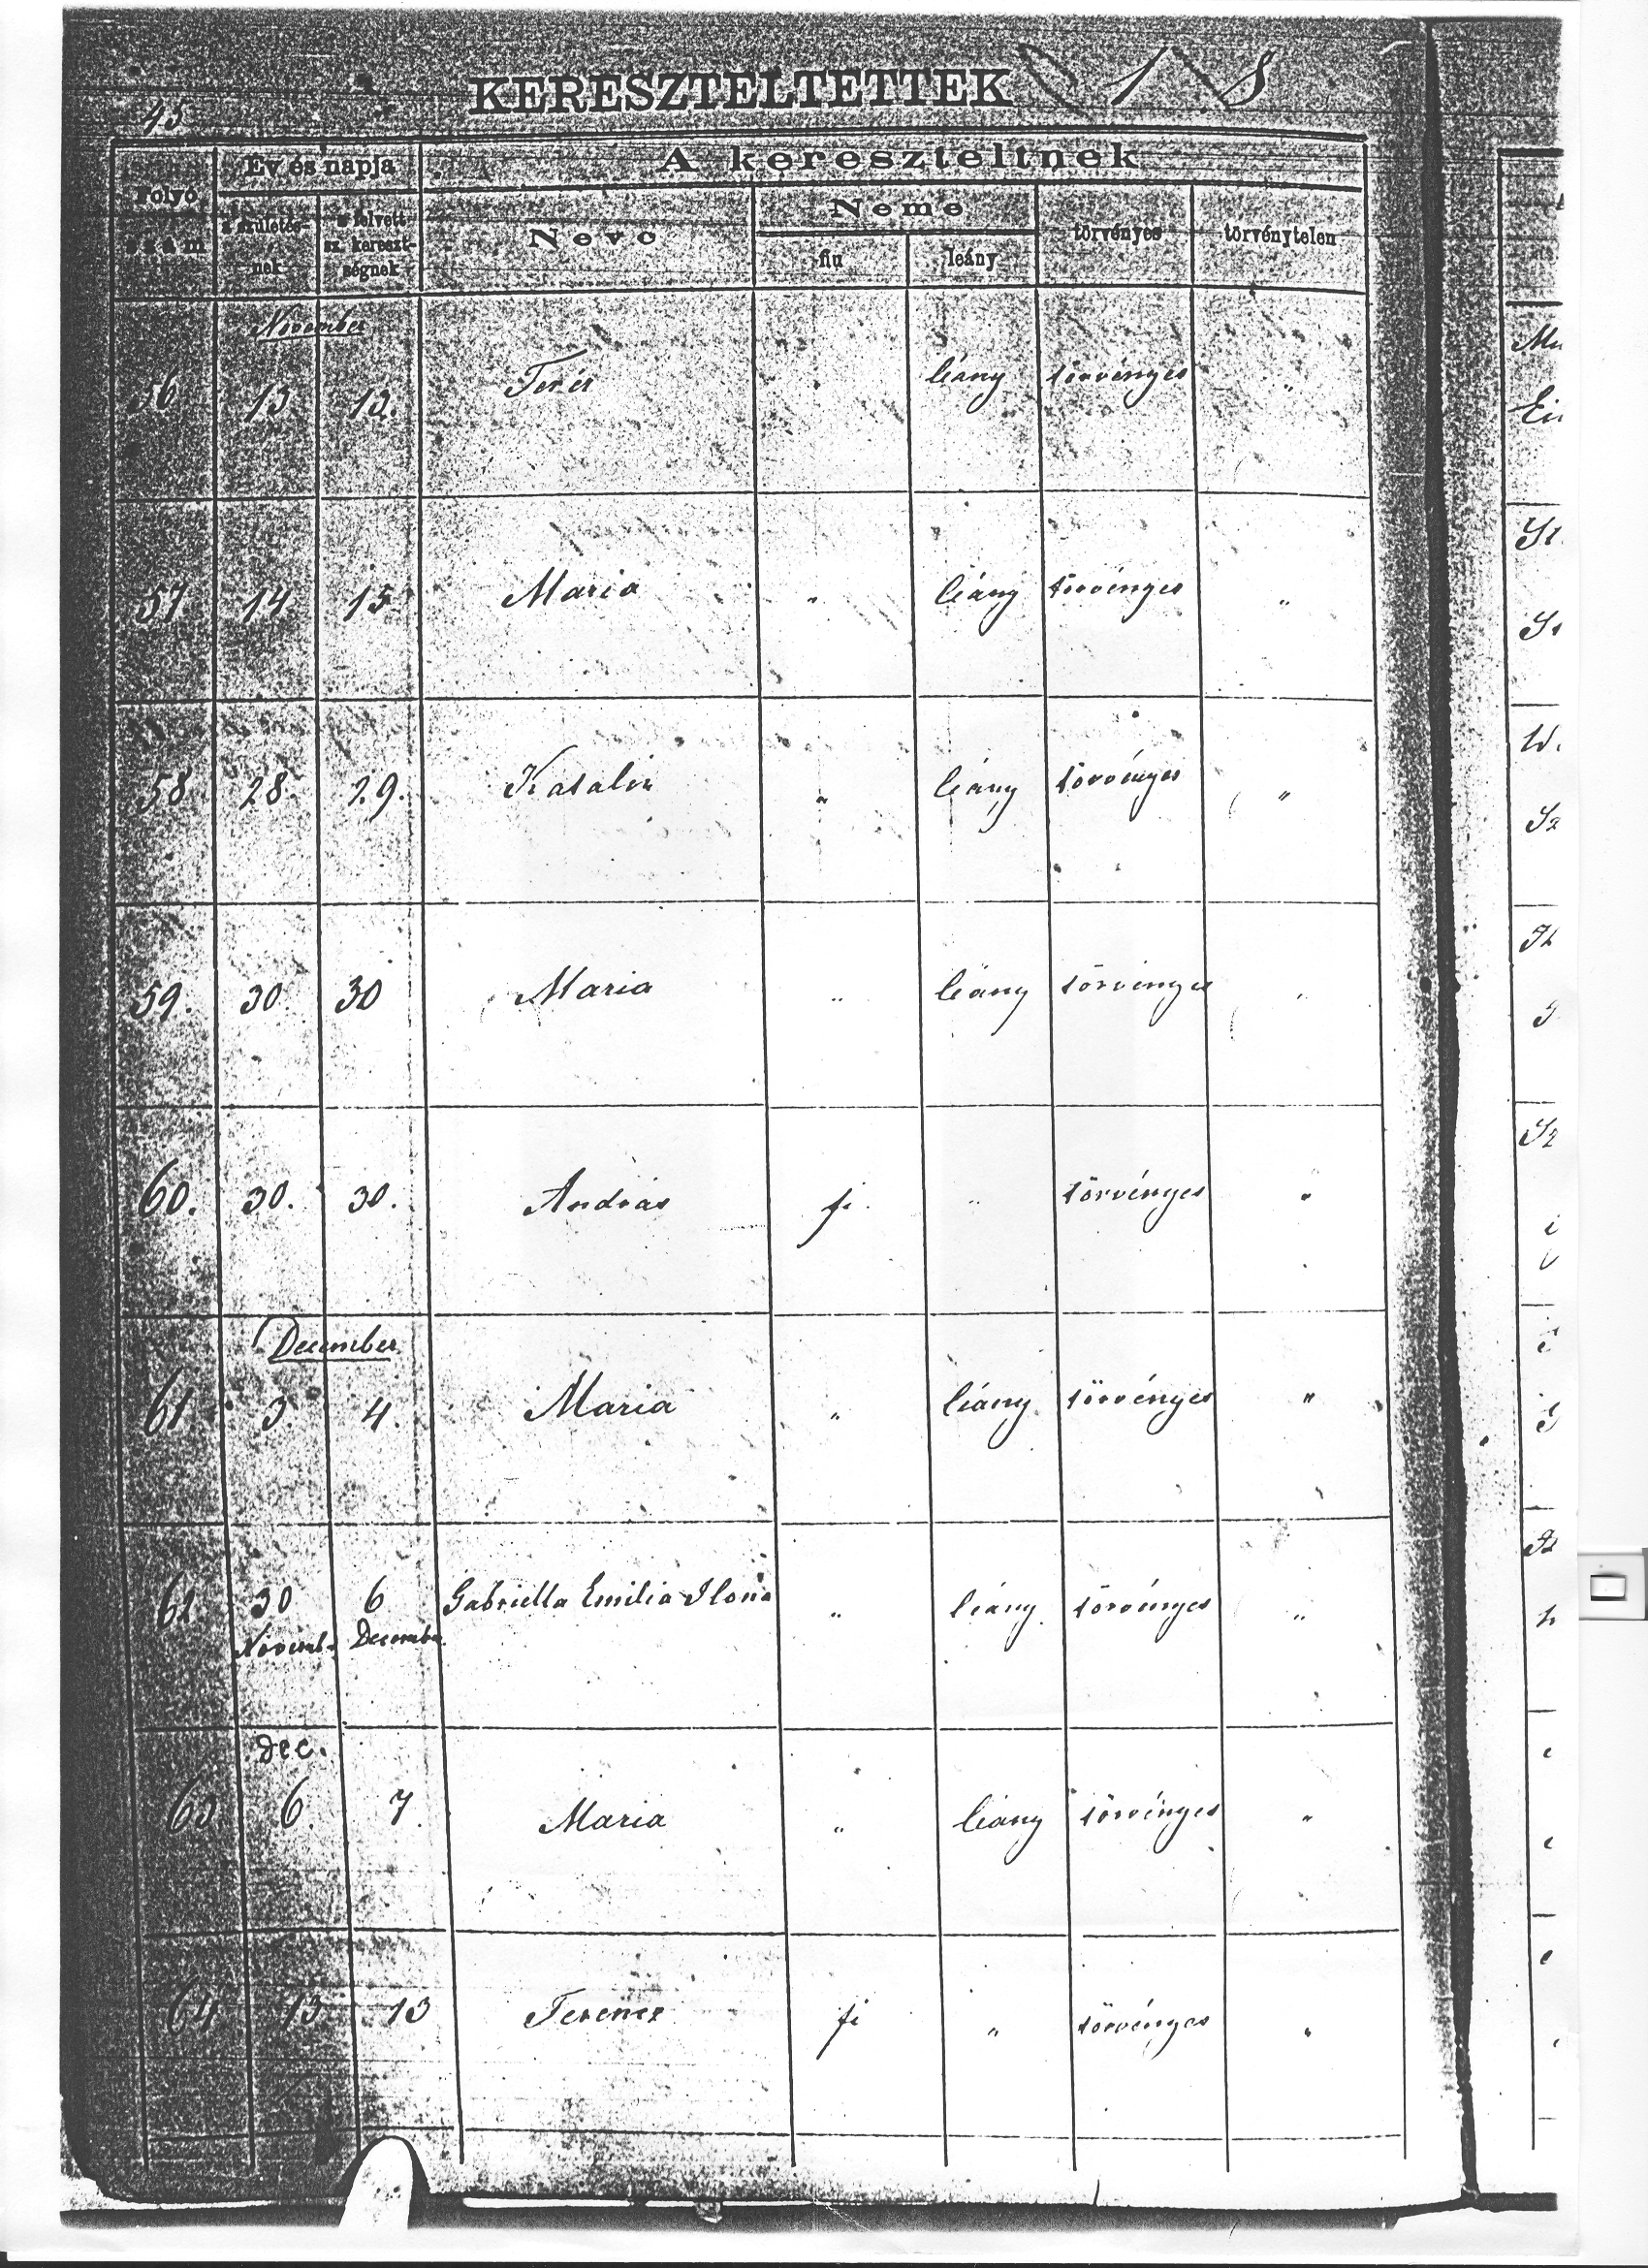 45
KERESZTELTETTEK
Folyó szám
Év és napja
A kereszteltnek
a születés-nek
a felvett sz. kereszt-ségnek
Neve
Neme
fiu
leány
törvényes
törvénytelen
November
56 13 13. Teréz leány törvényes "
57 14 15 Maria " leány törvényes "
58 28. 29. Katalin " leány törvényes "
59. 30. 30 Maria " leány törvényes "
60. 30. 30. András fi " törvényes "
December
61 3. 4. Maria " leány törvényes "
62 30 6 Gabriella Emilia Ilona " leány törvényes "
Novemb. Decemb.
dec.
63 6. 7. Maria " leány törvényes "
64 13 13 Ferencz fi " törvényes "